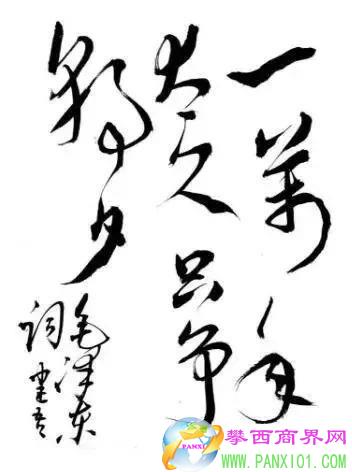 一萬年
太久只争
朝夕
毛泽东
词
攀西商界网
WWW.PANXI01.COM